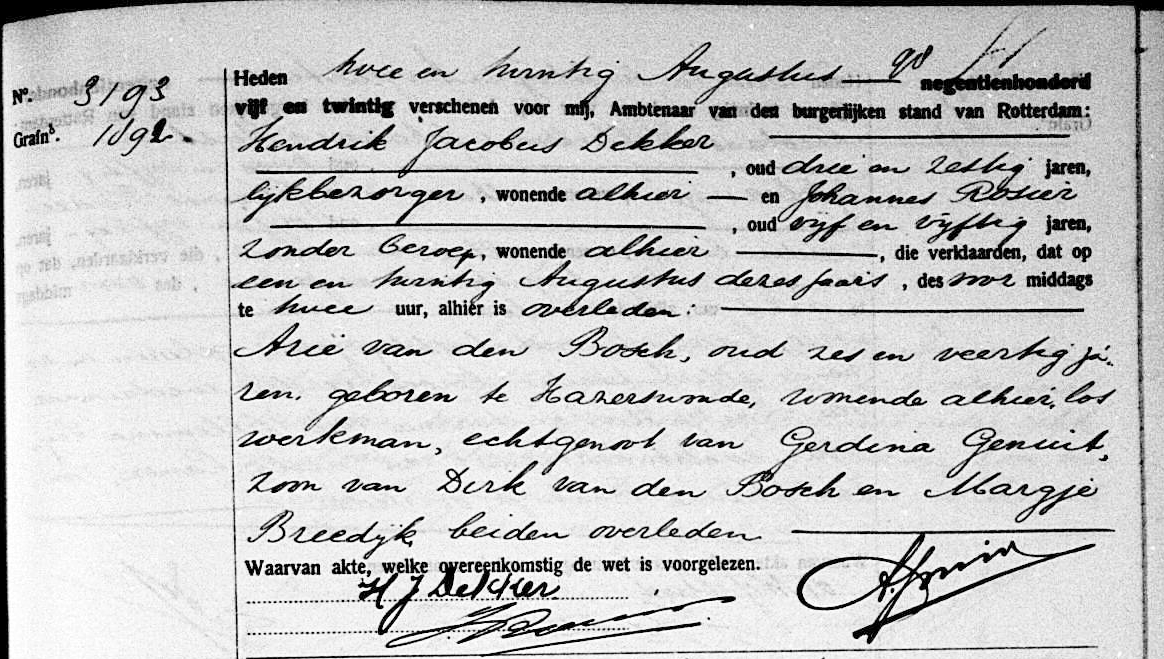 Nº. 3193
Grafnº. 1092.
Heden twee en twintig Augustus negentienhonderd
vijf en twintig verschenen voor mij, Ambtenaar van den burgerlijken stand van Rotterdam:
Hendrik Jacobus Dekker
, oud drie en zestig jaren,
lijkbezorger, wonende alhier — en Johannes Rosier
, oud vijf en vijftig jaren,
zonder beroep, wonende alhier —, die verklaarden, dat op
een en twintig Augustus dezes jaars, des voor middags
te twee uur, alhier is overleden:
Arie van den Bosch, oud zes en veertig ja-
ren, geboren te Hazerswoude, wonende alhier, los
werkman, echtgenoot van Gerdina Genuit,
zoon van Dirk van den Bosch en Margje
Breedijk, beiden overleden
Waarvan akte, welke overeenkomstig de wet is voorgelezen.
H J Dekker